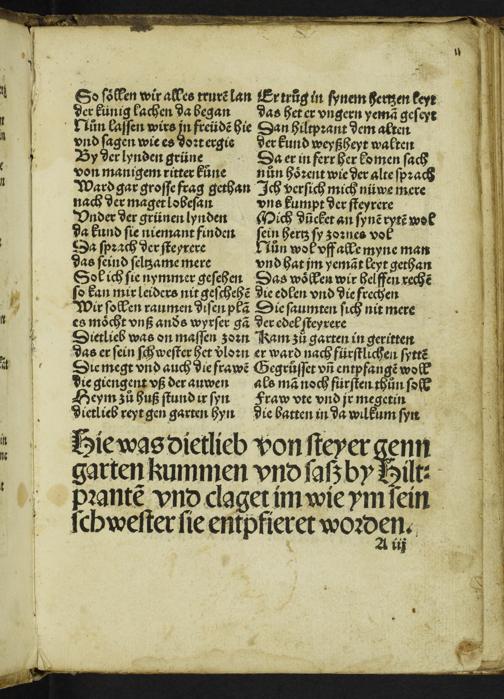 So söllen wir alles trurē lan
der künig lachen da began
Nün lassen wirs jn freüde hie
vnd sagen wie es dort ergie
By der lynden grüne
von manigem ritter küne
Ward gar grosse frag gethan
nach der maget lobesan
Vnder der grünen lynden
da kund sie niemant finden
Da sprach der steyrere
das seind seltzame mere
Sol ich sie nymmer gesehen
so kan mir leiders nit geschehē
Wir sollen raumen disen plā
es möcht vnß ands wyrser gā
Dietlieb was on massen zorn
das er sein schwester het vlorn
Sie megt vnd auch die frawē
die giengent vß der auwen
Heym zů huß stund ir syn
dietlieb reyt gen garten hyn
Er trůg in synem hertzen leyt
das het er vngern yemā geseyt
San hiltprant dem alten
der kund weyßheyt walten
Da er in ferr her komen sach
nün hörent wie der alte sprach
Ich versich mich nüwe mere
vns kumpt der steyrere
Mich dücket an synē rytē wol
sein hertz sy zornes vol
Nün wol vff alle myne man
vnd hat jm yemāt leyt gethan
Das wöllen wir helffen rechē
die edlen vnd die frechen
Die saumten sich nit mere
der edel steyrere
Kam zů garten in geritten
er ward nach fürstlichen syttē
Gegrüsset vñ entpfangē woll
als mā noch fürsten thůn soll
Fraw vte vnd jr megetin
die batten in da wilkum syn
Hie was dietlieb von steyer genn
garten kummen vnd saß by Hilt-
prantē vnd claget im wie ym sein
schwester sie entpfieret worden.
A iij